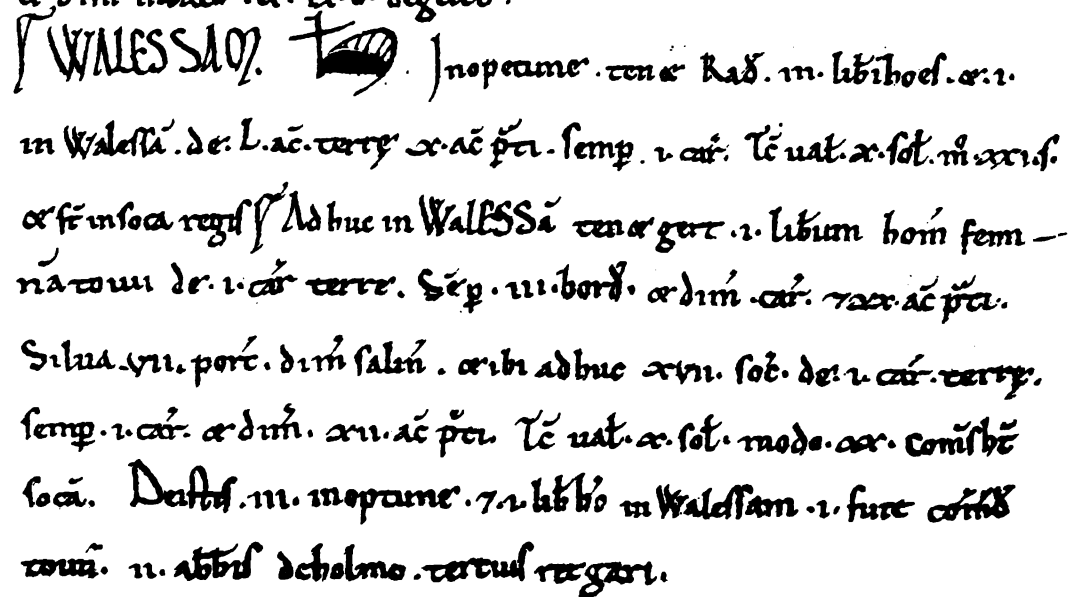 WALESSAM. H. Inopetune. ten& Rad̄. III. lib̄ihoēs. &. I.
in Walessā. de. L. ac̄. terrę X. ac̄ p̄ti. semp̲. I. car̄. Tc̄ ual̄. X. sol̄. m̊. XXI. s.
& st̄ in soca regis Adhuc in WalESSā ten& gert. I. liƀum hom̄ femi—
nā tolui de. I. car̄ terre. Sēp̲. III. bord̄. & dim̄. car̄. 7 XX. ac̄ p̄ti.
Silua. VII. porc̄. dim̄ salin̄. & ibi adhuc XVII. soc̄. de. I. car̄. terrę.
semp̲. I. car̄. & dim̄. XII. ac̄ p̄ti. Tc̄ ual̄. X. sol̄. modo. XX. Comes ht̄
socā. De istis. III. in optune. 7. I. liƀ ho in Walessam. I. fuit
. II. abb̄is deholmo. tertius